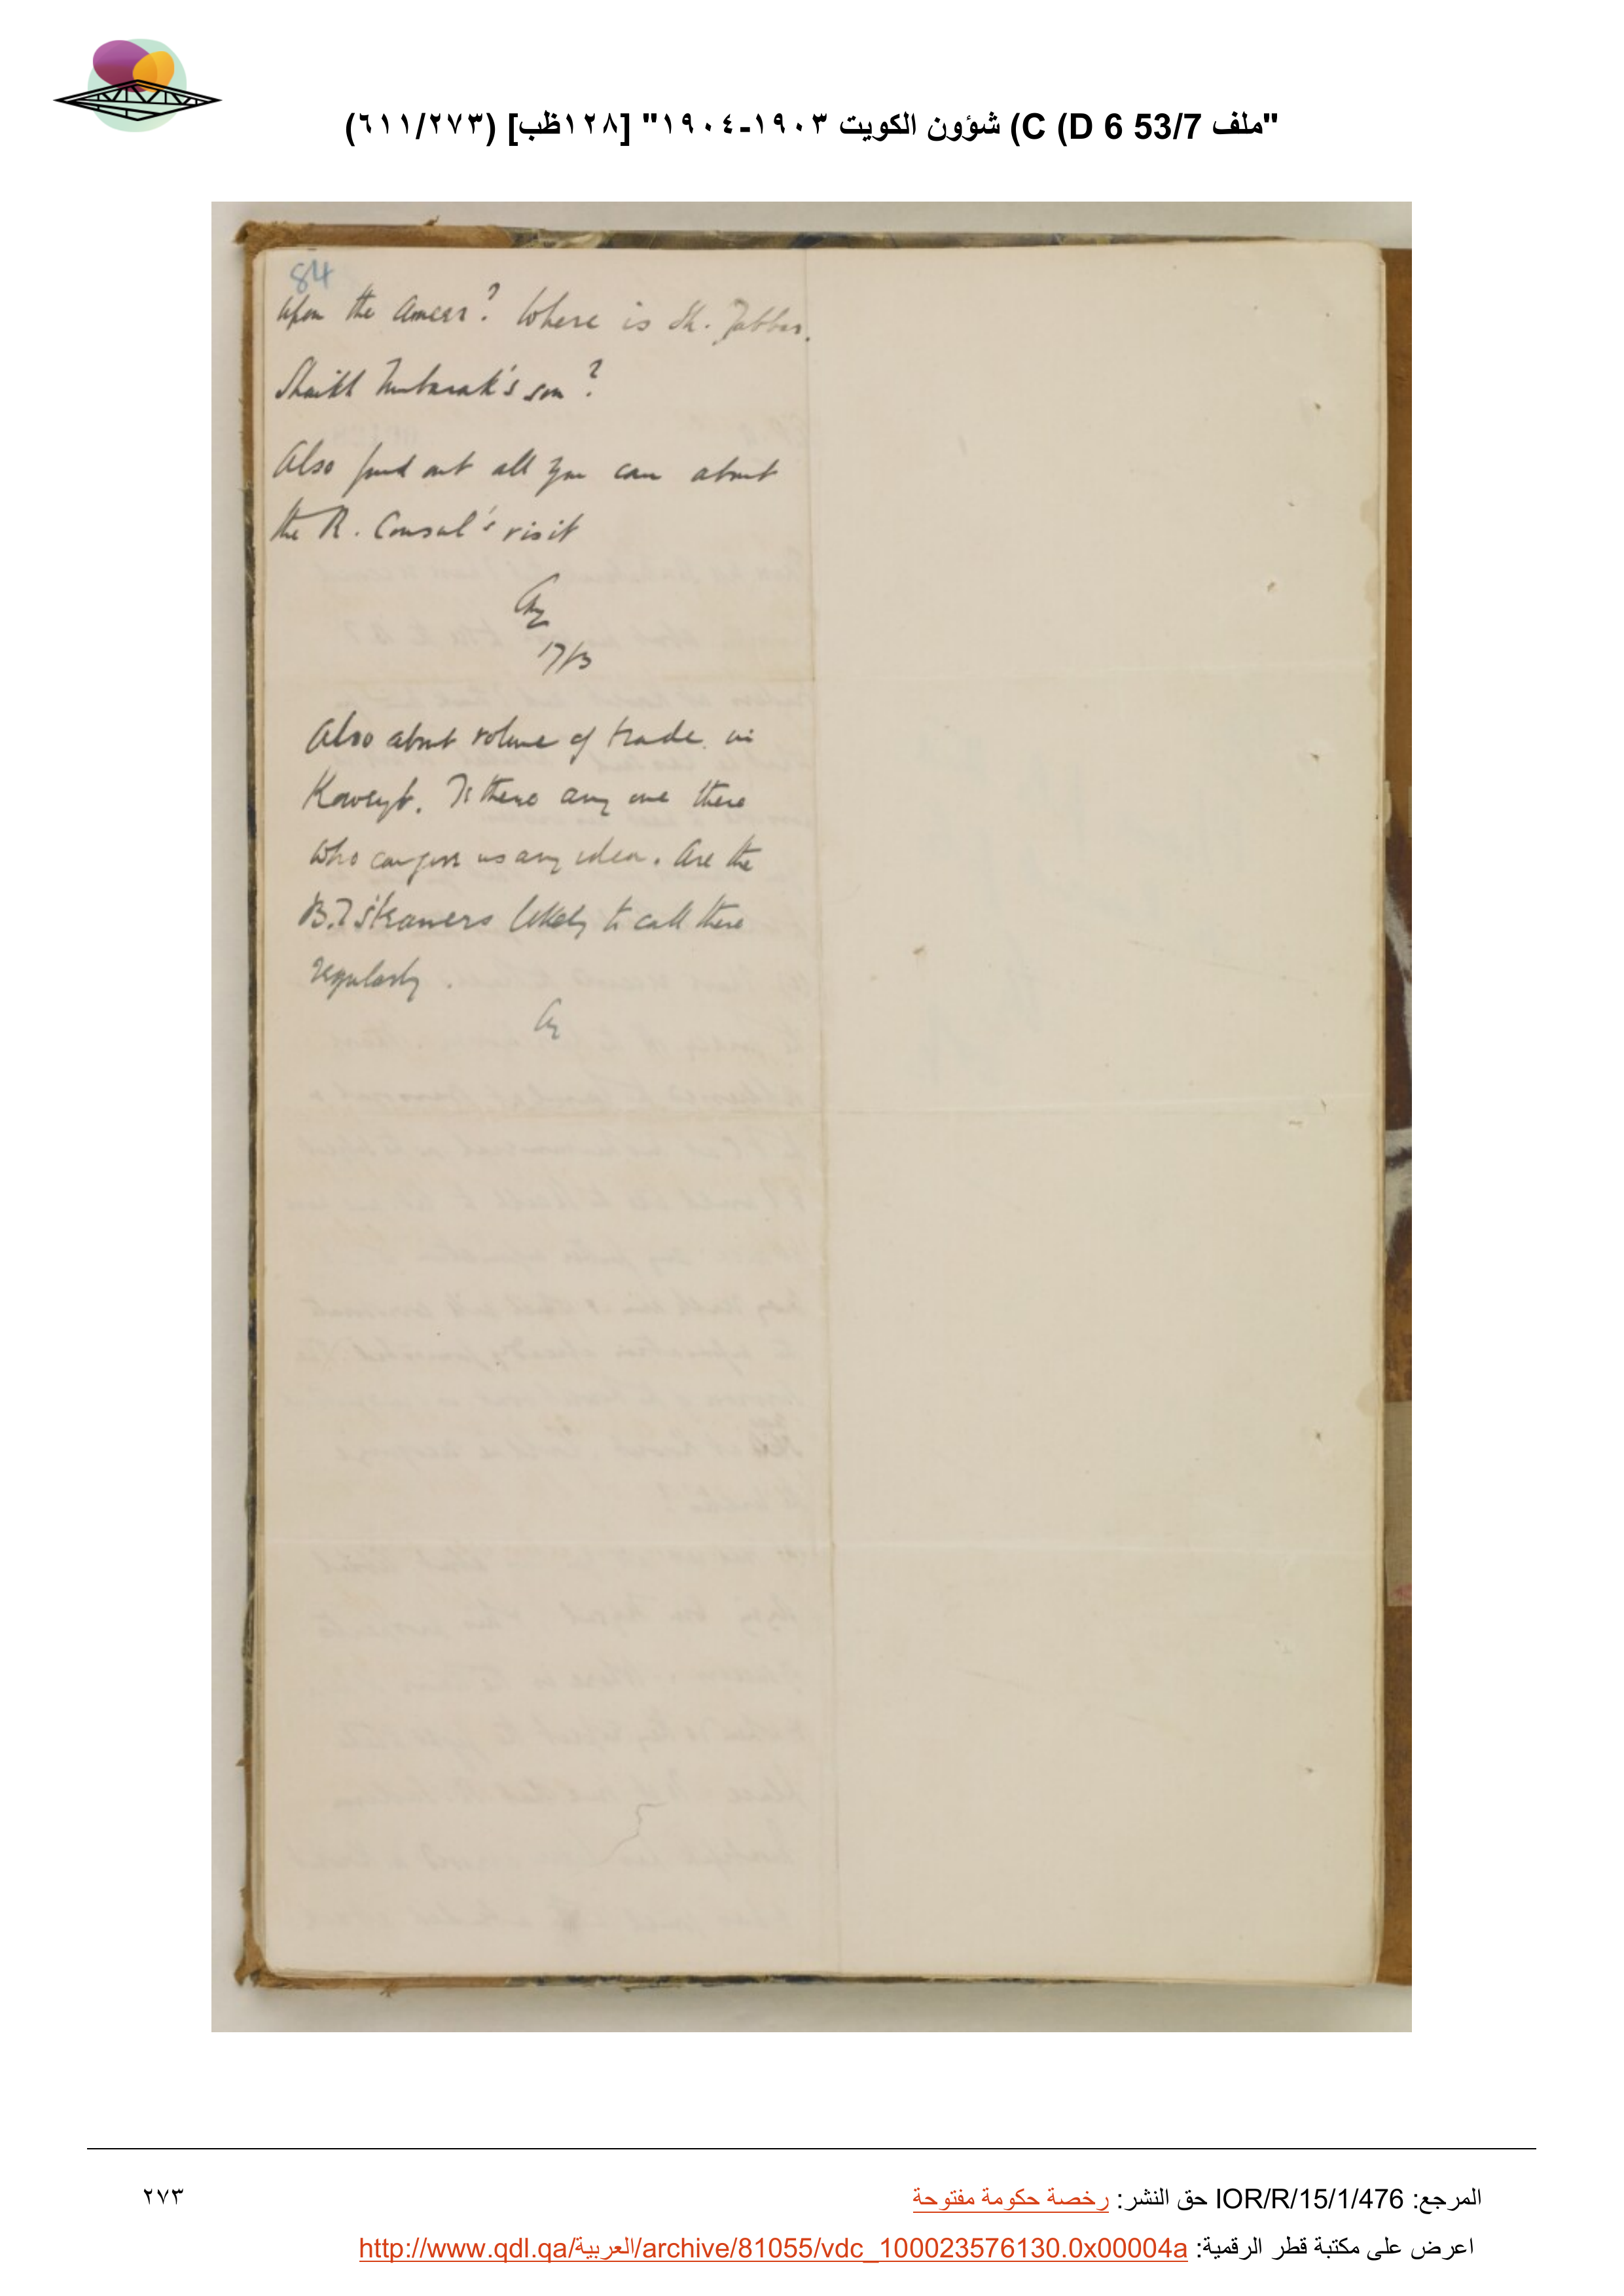 "ملف 53/7 C (D 6) شؤون الكويت ١٩٠٣-١٩٠٤" [١٢٨ظب] (٦١١/٢٧٣)
84
upon the Ameer? Where is Sh. Jabbar.
Shaikh Mubarak's son?
Also find out all you can about
the R. Consul's visit
17/3
Also about volume of trade in
Koweyt. Is there any one there
who can give us any idea. Are the
B.I steamers likely to call there
regularly.
المرجع: IOR/R/15/1/476 حق النشر: رخصة حكومة مفتوحة
٢٧٣
اعرض على مكتبة قطر الرقمية: http://www.qdl.qa/العربية/archive/81055/vdc_100023576130.0x00004a